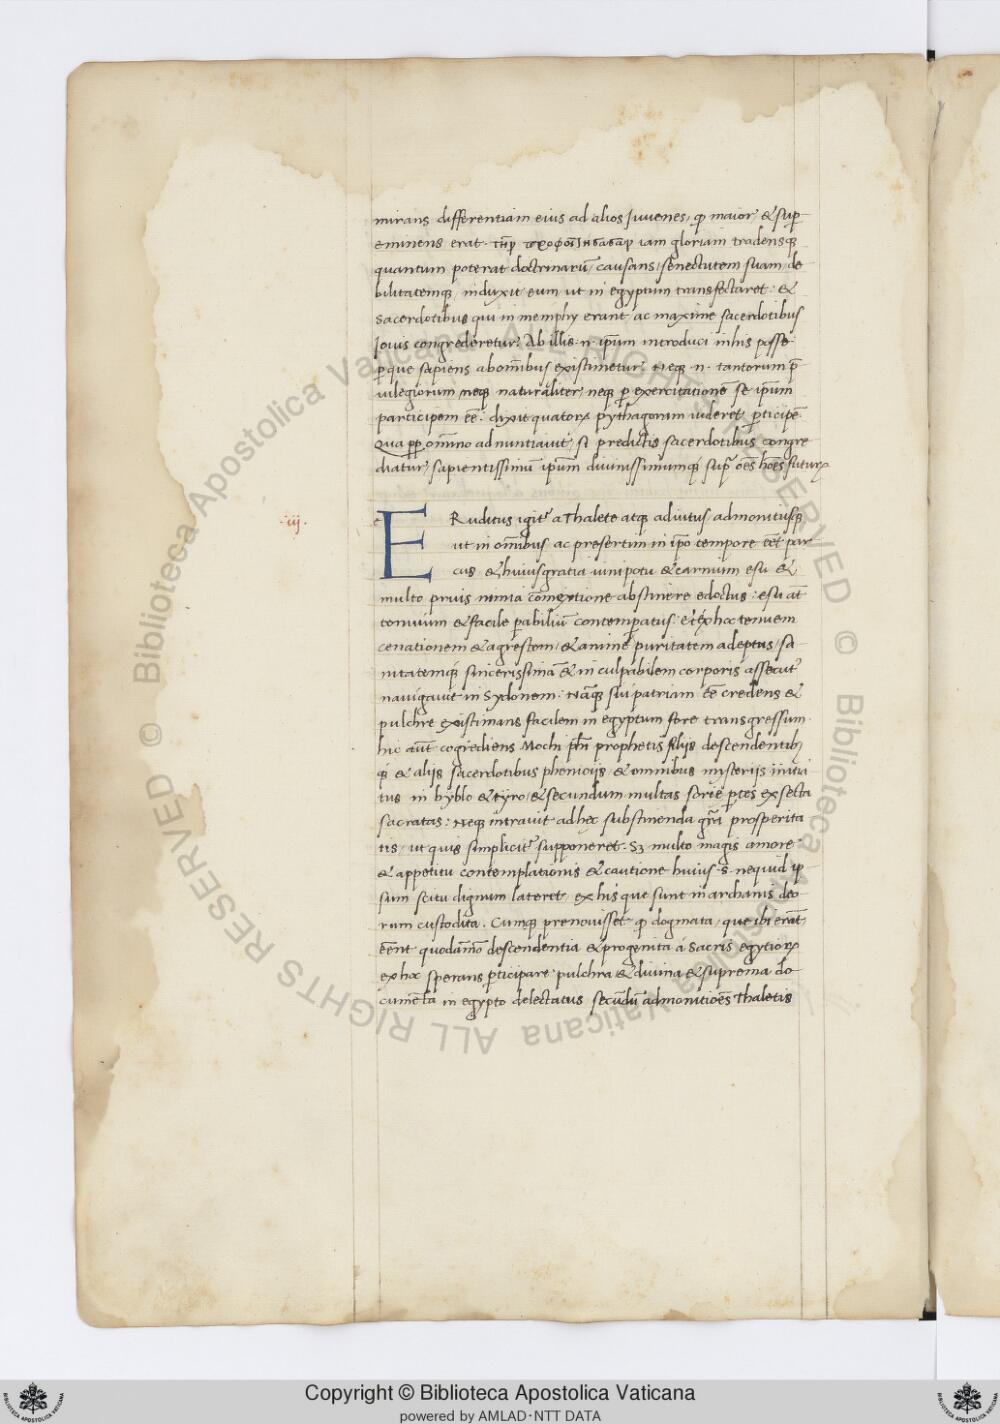 mirans differentiam eius ad alios Juvenes, ꝙ maior, & sup̱
eminens erat. iam gloriam tradensq̃
quantum poterat doctrinarū, causans, senectutem suam, de
bilitatemq̃, induxit eum ut in egyptum transfectaret: &
sacerdotibus qui in memphy erant ac maxime sacerdotibus
Jovis congrederetur: Ab illis .n. ip̄um introduci in his posse
ꝑ que sapiens ab om̄ibus existimetur: Neq̃ .n. tantorum p̄
uilegiorum neq̃ naturaliter, neq̃ ꝑ exercitationē se ip̄um
participem eē: dixit quatorꝝ pythagoram uideret ꝑticipē
Qua ꝓꝑ om̄ino adnuntiauit, si predictis sacerdotibus congre
diatur, sapientissimū ip̄um diuinissimumq̃ supͣ oēs hoēs futurꝝ
.iij.
e
ERuditus igitᷣ a Thalete atq̃ adiutus, admonitusq̃
ut in om̄ibus ac presertim in ip̄o tempore eēt par
cus & huius gratia uini potu & carnium esu &
multo prius nimia com̄extione abstinere edoctus: esu aūt
tenuium & facile ꝑabilium contemperatus: & ex hoc tenuem
cenationem & agrestem, & anime puritatem adeptus, sa
nitatemq̃ sincerissimā & inculpabilem corporis assecutᷣ
nauigauit in Sydonem: Nāq̃ sui patriam eē credens &
pulchre existimans facilem in egyptum fore transgressum.
hic aūt cogrediens Mochi prophetis filijs descendentibꝫ
q̃ & alijs sacerdotibus phenicijs, & omnibus mysterijs initia
tus in byblo & tyro, & secundum multas sorie ꝑtes exsecta
sacratas: Neq̃ intrauit ad hęc substinenda gr̄a prosperita
tis, ut quis simplicitᷣ supponeret. Sꝫ multo magis amore
& appetitu contemplationis & cautione huius .s. nequid ip̱
sum scitu dignum lateret ex his que sunt in archanis deo
rum custodita. Cumq̃ prenouisset ꝙ dogmata, que ibi erāt
eēnt quodam̄o descendentia & progenita a sacris egytiorꝝ
ex hoc sperans ꝑticipare pulchra & diuina & suprema do
cumēta in egypto delectatus secūdū admonitioēs Thaletis
Copyright © Biblioteca Apostolica Vaticana
powered by AMLAD·NTT DATA
© Biblioteca Apostolica Vaticana ALL RIGHTS RESERVED © Biblioteca Apostolica Vaticana ALL RIGHTS RESERVED